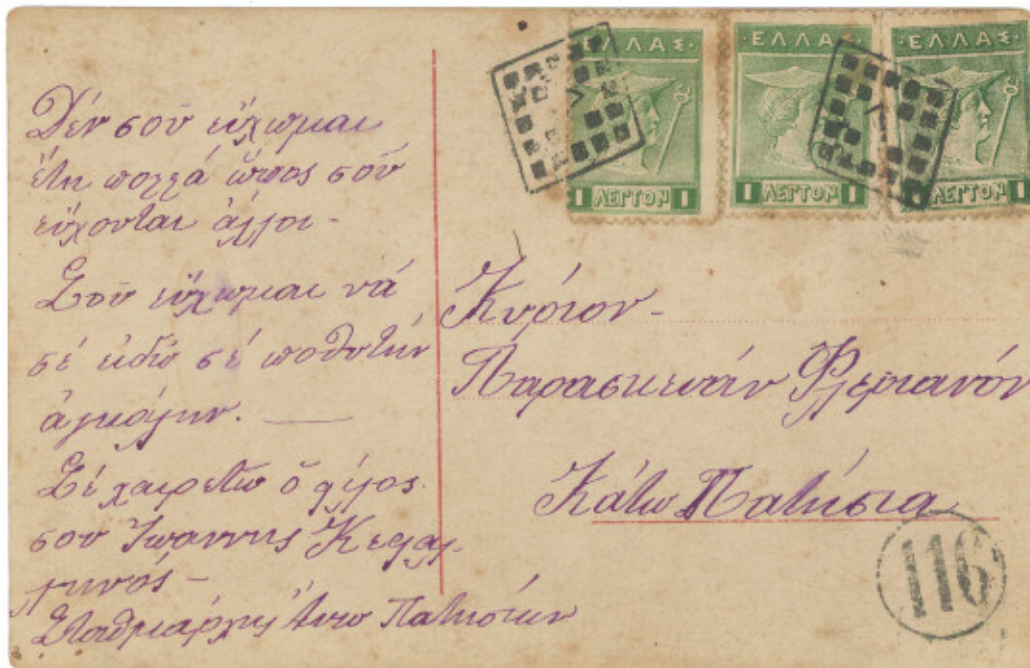 Δέν σοῦ εὔχωμαι
ἔτη πολλά ὅπως σοῦ
εὔχονται ἄλλοι -
Σοῦ εὔχωμαι νά
σέ ειδῶ σέ ποθητήν
ἀγκάλην. —
Σέ χαιρετῶ ὁ φίλος
σου Ἰωαννης Κεφαλ-
ληνός -
Σταθμάρχης Ἄνω Πατησίων
ΕΛΛΑΣ
1 ΛΕΠΤΟΝ 1
ΕΛΛΑΣ
1 ΛΕΠΤΟΝ 1
ΕΛΛΑΣ
1 ΛΕΠΤΟΝ 1
Κυριον -
Παρασκευάν
Κάτω Πατήσια
116